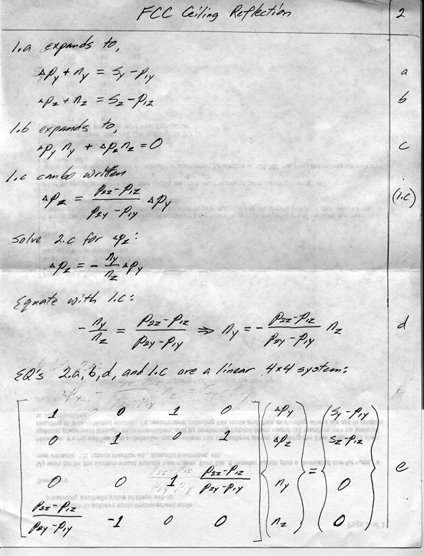 FCC Ceiling Reflection 2
1.a expands to,
Δp_y + n_y = s_y - p_1y a
Δp_z + n_z = s_z - p_1z b
1.b expands to,
Δp_y n_y + Δp_z n_z = 0 c
1.c can be written
Δp_z = (p_2z - p_1z)/(p_2y - p_1y) Δp_y (1.c)
Solve 2.c for Δp_z:
Δp_z = - n_y/n_z Δp_y
Equate with 1.c:
- n_y/n_z = (p_2z - p_1z)/(p_2y - p_1y) ⇒ n_y = - (p_2z - p_1z)/(p_2y - p_1y) n_z d
EQ's 2.a, b, d, and 1.c are a linear 4x4 system:
1 0 1 0 Δp_y s_y - p_1y
0 1 0 1 Δp_z s_z - p_1z
0 0 1 (p_2z - p_1z)/(p_2y - p_1y) n_y = 0 e
(p_2z - p_1z)/(p_2y - p_1y) -1 0 0 n_z 0